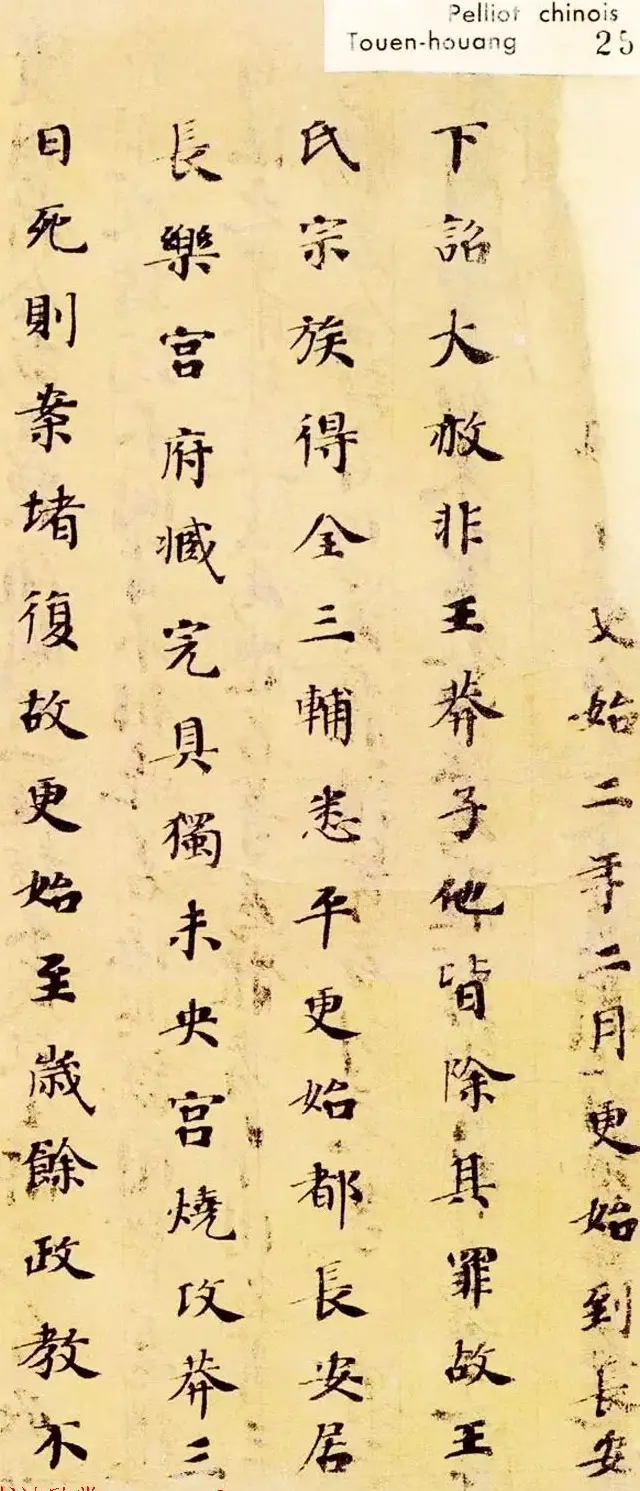 Pelliot chinois
Touen-houang 25
始二年二月更始到長安
下詔大赦非王莽子他皆除其罪故王
氏宗族得全三輔悉平更始都長安居
長樂宮府臧完具獨未央宮燒攻莽三
日死則案堵復故更始至歲餘政教不